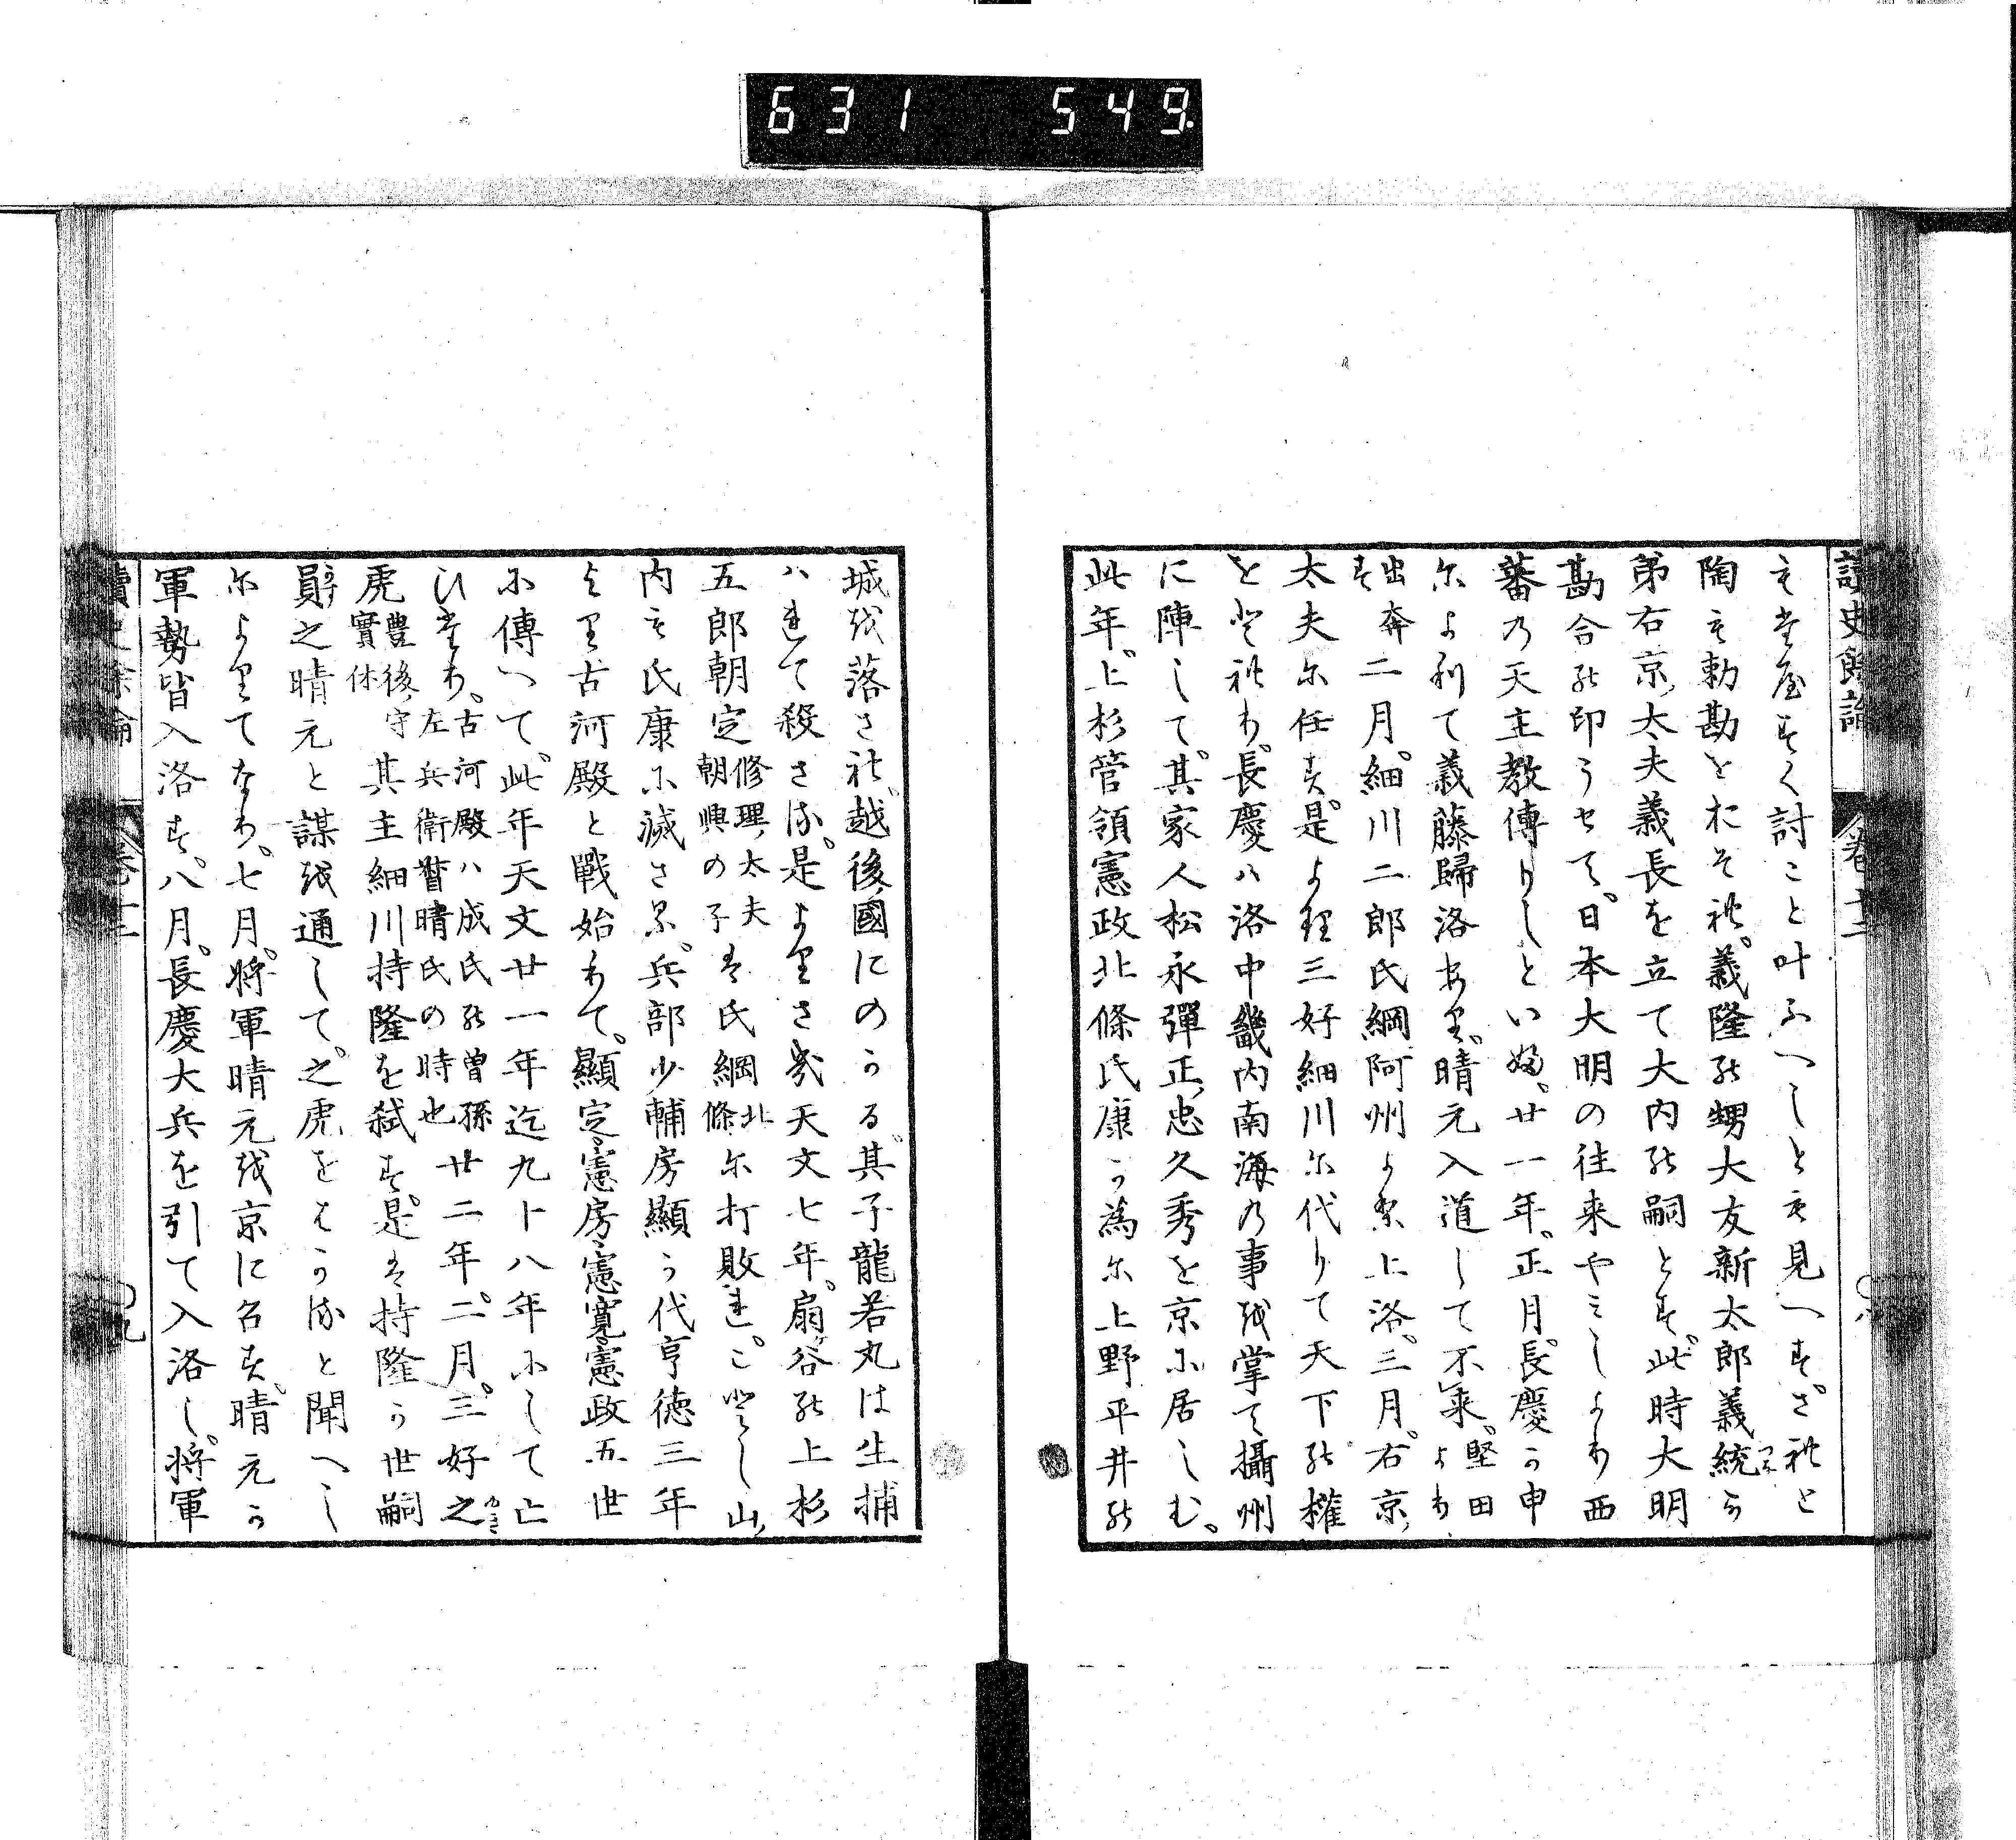 631 549.
讀史餘論 巻十二 〇八
も、たやすく討こと叶ふへしとも見へす。されと
陶も勅勘をおそれ。義隆の甥大友新太郎義統か
弟右京大夫義長を立て大内の嗳とす。此時大明
勘合の印うせて。日本大明の往来やみしより西
蕃の天主教傳りしといふ。廿一年。正月。長慶か申
によりて義藤歸洛あり。晴元入道して不来。堅田より
出奔す二月。細川二郎氏綱阿州より上洛。三月。右京
太夫に任す。是より三好細川に代りて天下の権
をとれり。長慶ハ洛中畿内南海の事を掌て攝州
に陣して。其家人松永彈正忠久秀を京に居しむ。
此年。上杉管領憲政北條氏康か為に上野平井の
城を落され。越後國にのかる其子龍若丸は生捕
ハれて殺さる。是よりさき天文七年。扇谷の上杉
五郎朝定修理太夫朝興の子も氏綱北條に打敗れ。ことし山
内も氏康に滅さる。兵部少輔房顯か代亨徳三年
より古河殿と戰始りて。顯定。憲房。憲寛。憲政五世
に傳へて。此年天文廿一年迄九十八年にして亡
ひたり。古河殿ハ成氏の曽孫左兵衛督晴氏の時也廿二年。二月。三好之
虎豊後守實休其主細川持隆を弑す。是も持隆か世嗣
員之晴元と謀を通して。之虎をはかると聞へし
によりてなり。七月。将軍晴元を京に召す。晴元か
軍勢皆入洛す。八月。長慶大兵を引て入洛し。将軍
讀史餘論 巻十二 〇九